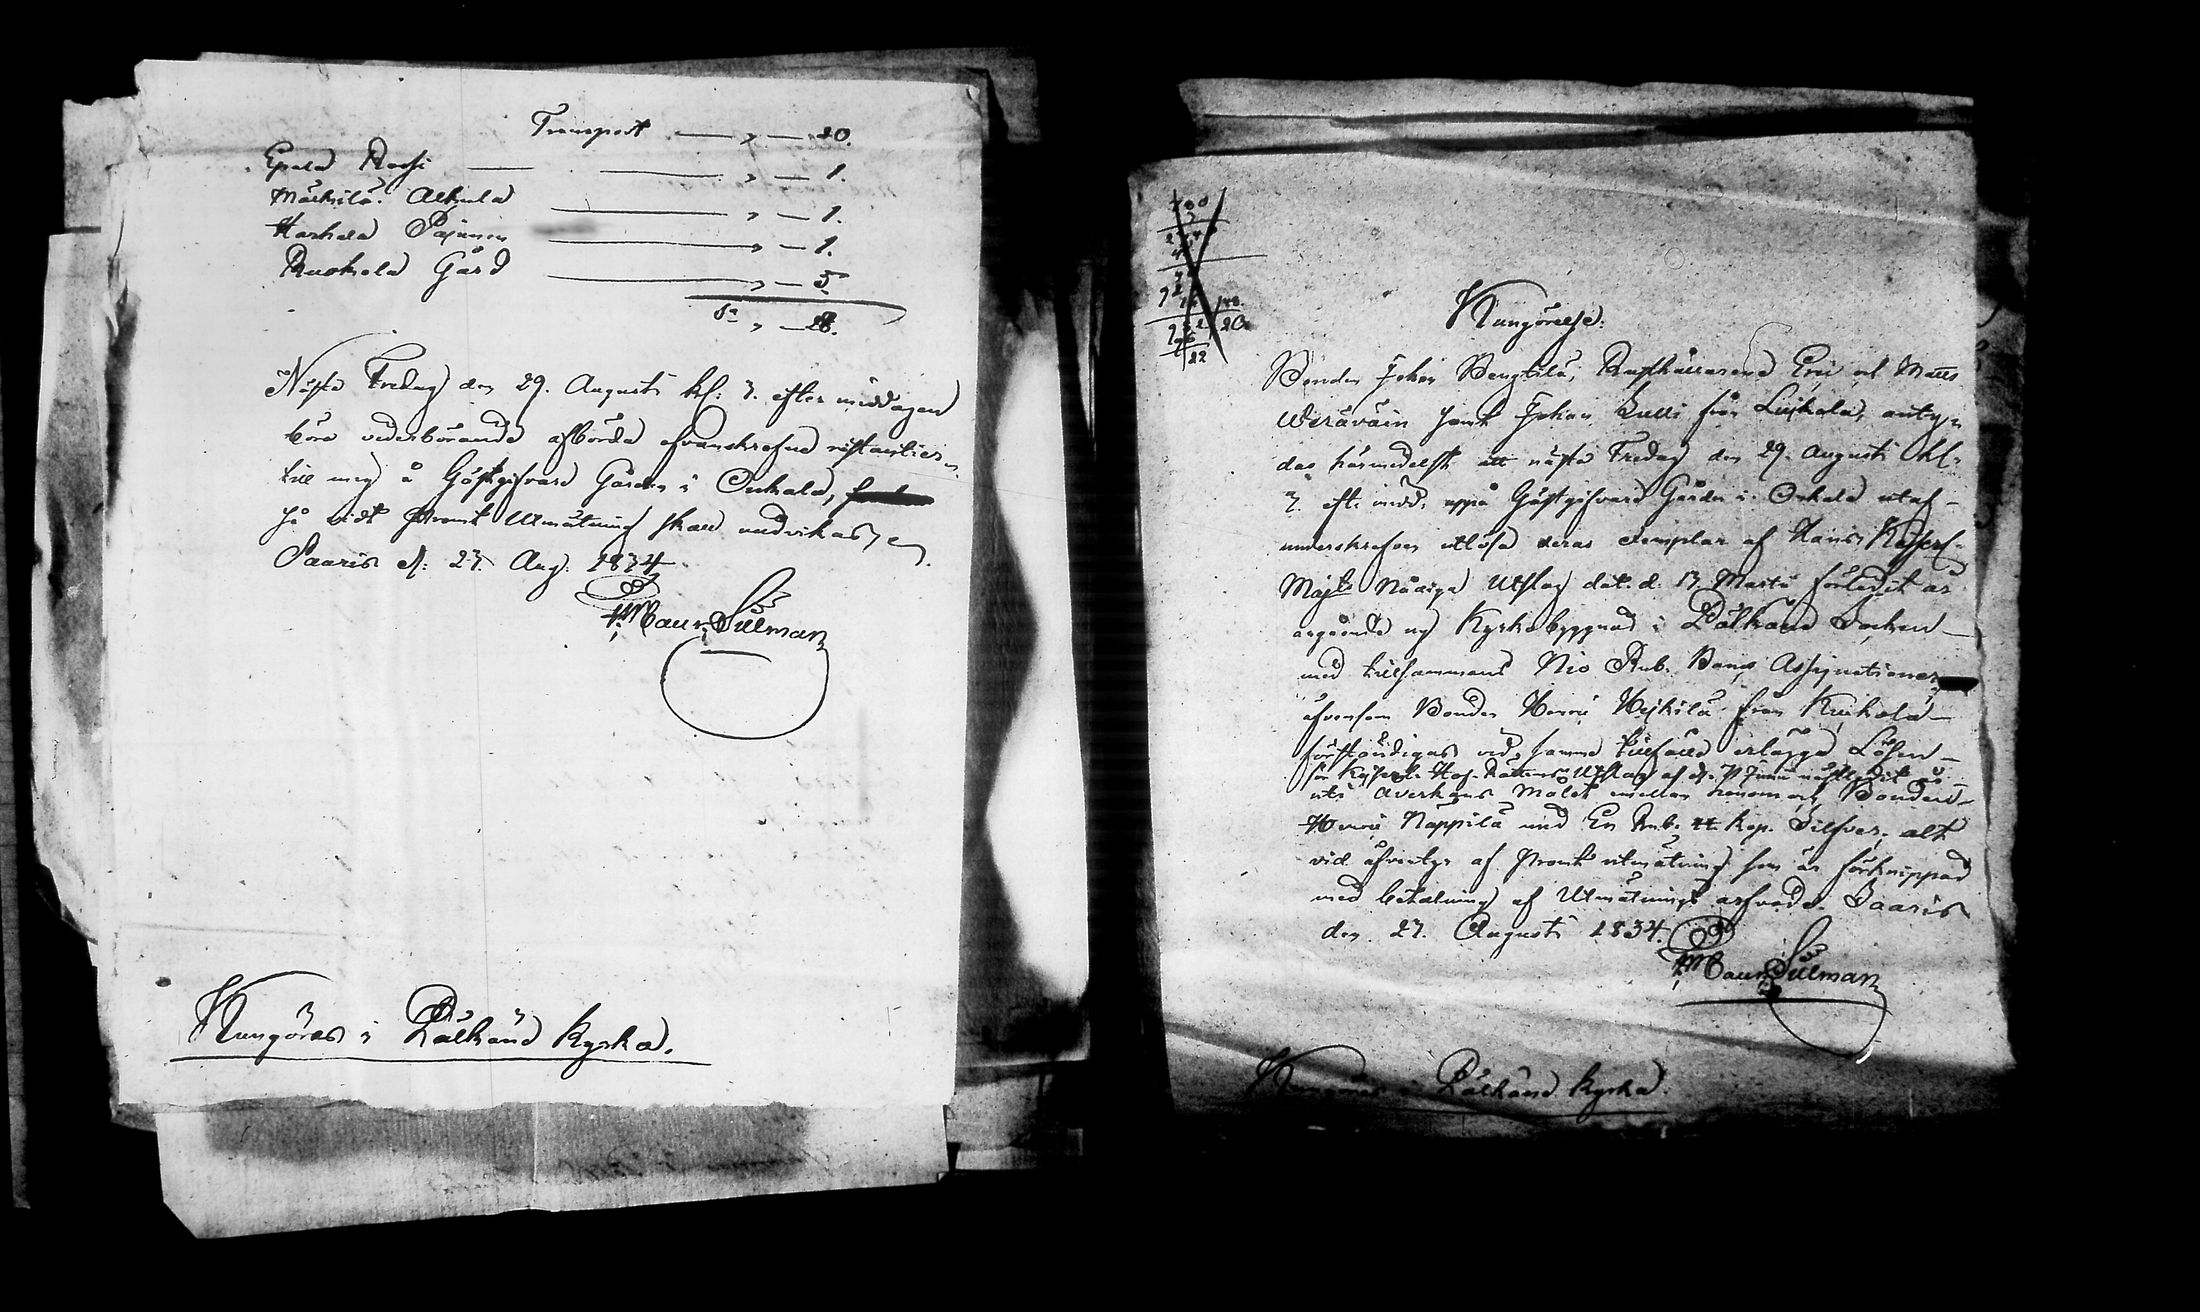 Transport — " — 20.
Epala Rossi — " — 1.
Mälkilä Alkula — " — 1.
Harhala Pajunen — " — 1.
Ruokola Gård — " — 5.
S:a " — 28.
Nästa Fredag den 29. Augusti kl: 3. efter middagen
böra vederbörande afbörda ofvanskrefne restantier
till mig å Gästgifvare Gården i Onkala,
så vidt promt Utmätning skall undvikas
Saaris d. 27. Aug. 1834
Maur. Silman
Kungöres i Pälkäne Kyrka.
Kungörelse.
Bonden Johan Bengtilä, Rusthållarene Eric och Matts
samt Johan från Luikala, antyu
das härmedelst att nästa Fredag den 29. Augusti kl:
3. eft. midd. uppå Gästgifvare Gården i Onkala utaf
underskrefven utlösa deras exemplar af Hans Kejserl.
Majts Nådiga Utslag dat. d. 13. Martii förledit år
angående ny Kyrkobyggnad i Pälkäne Socken
med tillsammans Nio Rub. Banco Assignationer
äfvensom Bonden Henric Heikilä från
förständigas vid samma tillfälle erlägga Lösen
för Kejserl. Hof-Rättens Utslag af d. Junii nästledit år
uti Averkans Målet emellan honom och Bonden
Henric Näppilä med En Rub. Kop. Silfver, alt
vid äfventyr af promt utmätning som är förknippad
med betalning af Utmätnings arfvode. Saaris
den 27. Augusti 1834.
Maur. Silman
Kungöres i Pälkäne Kyrka.